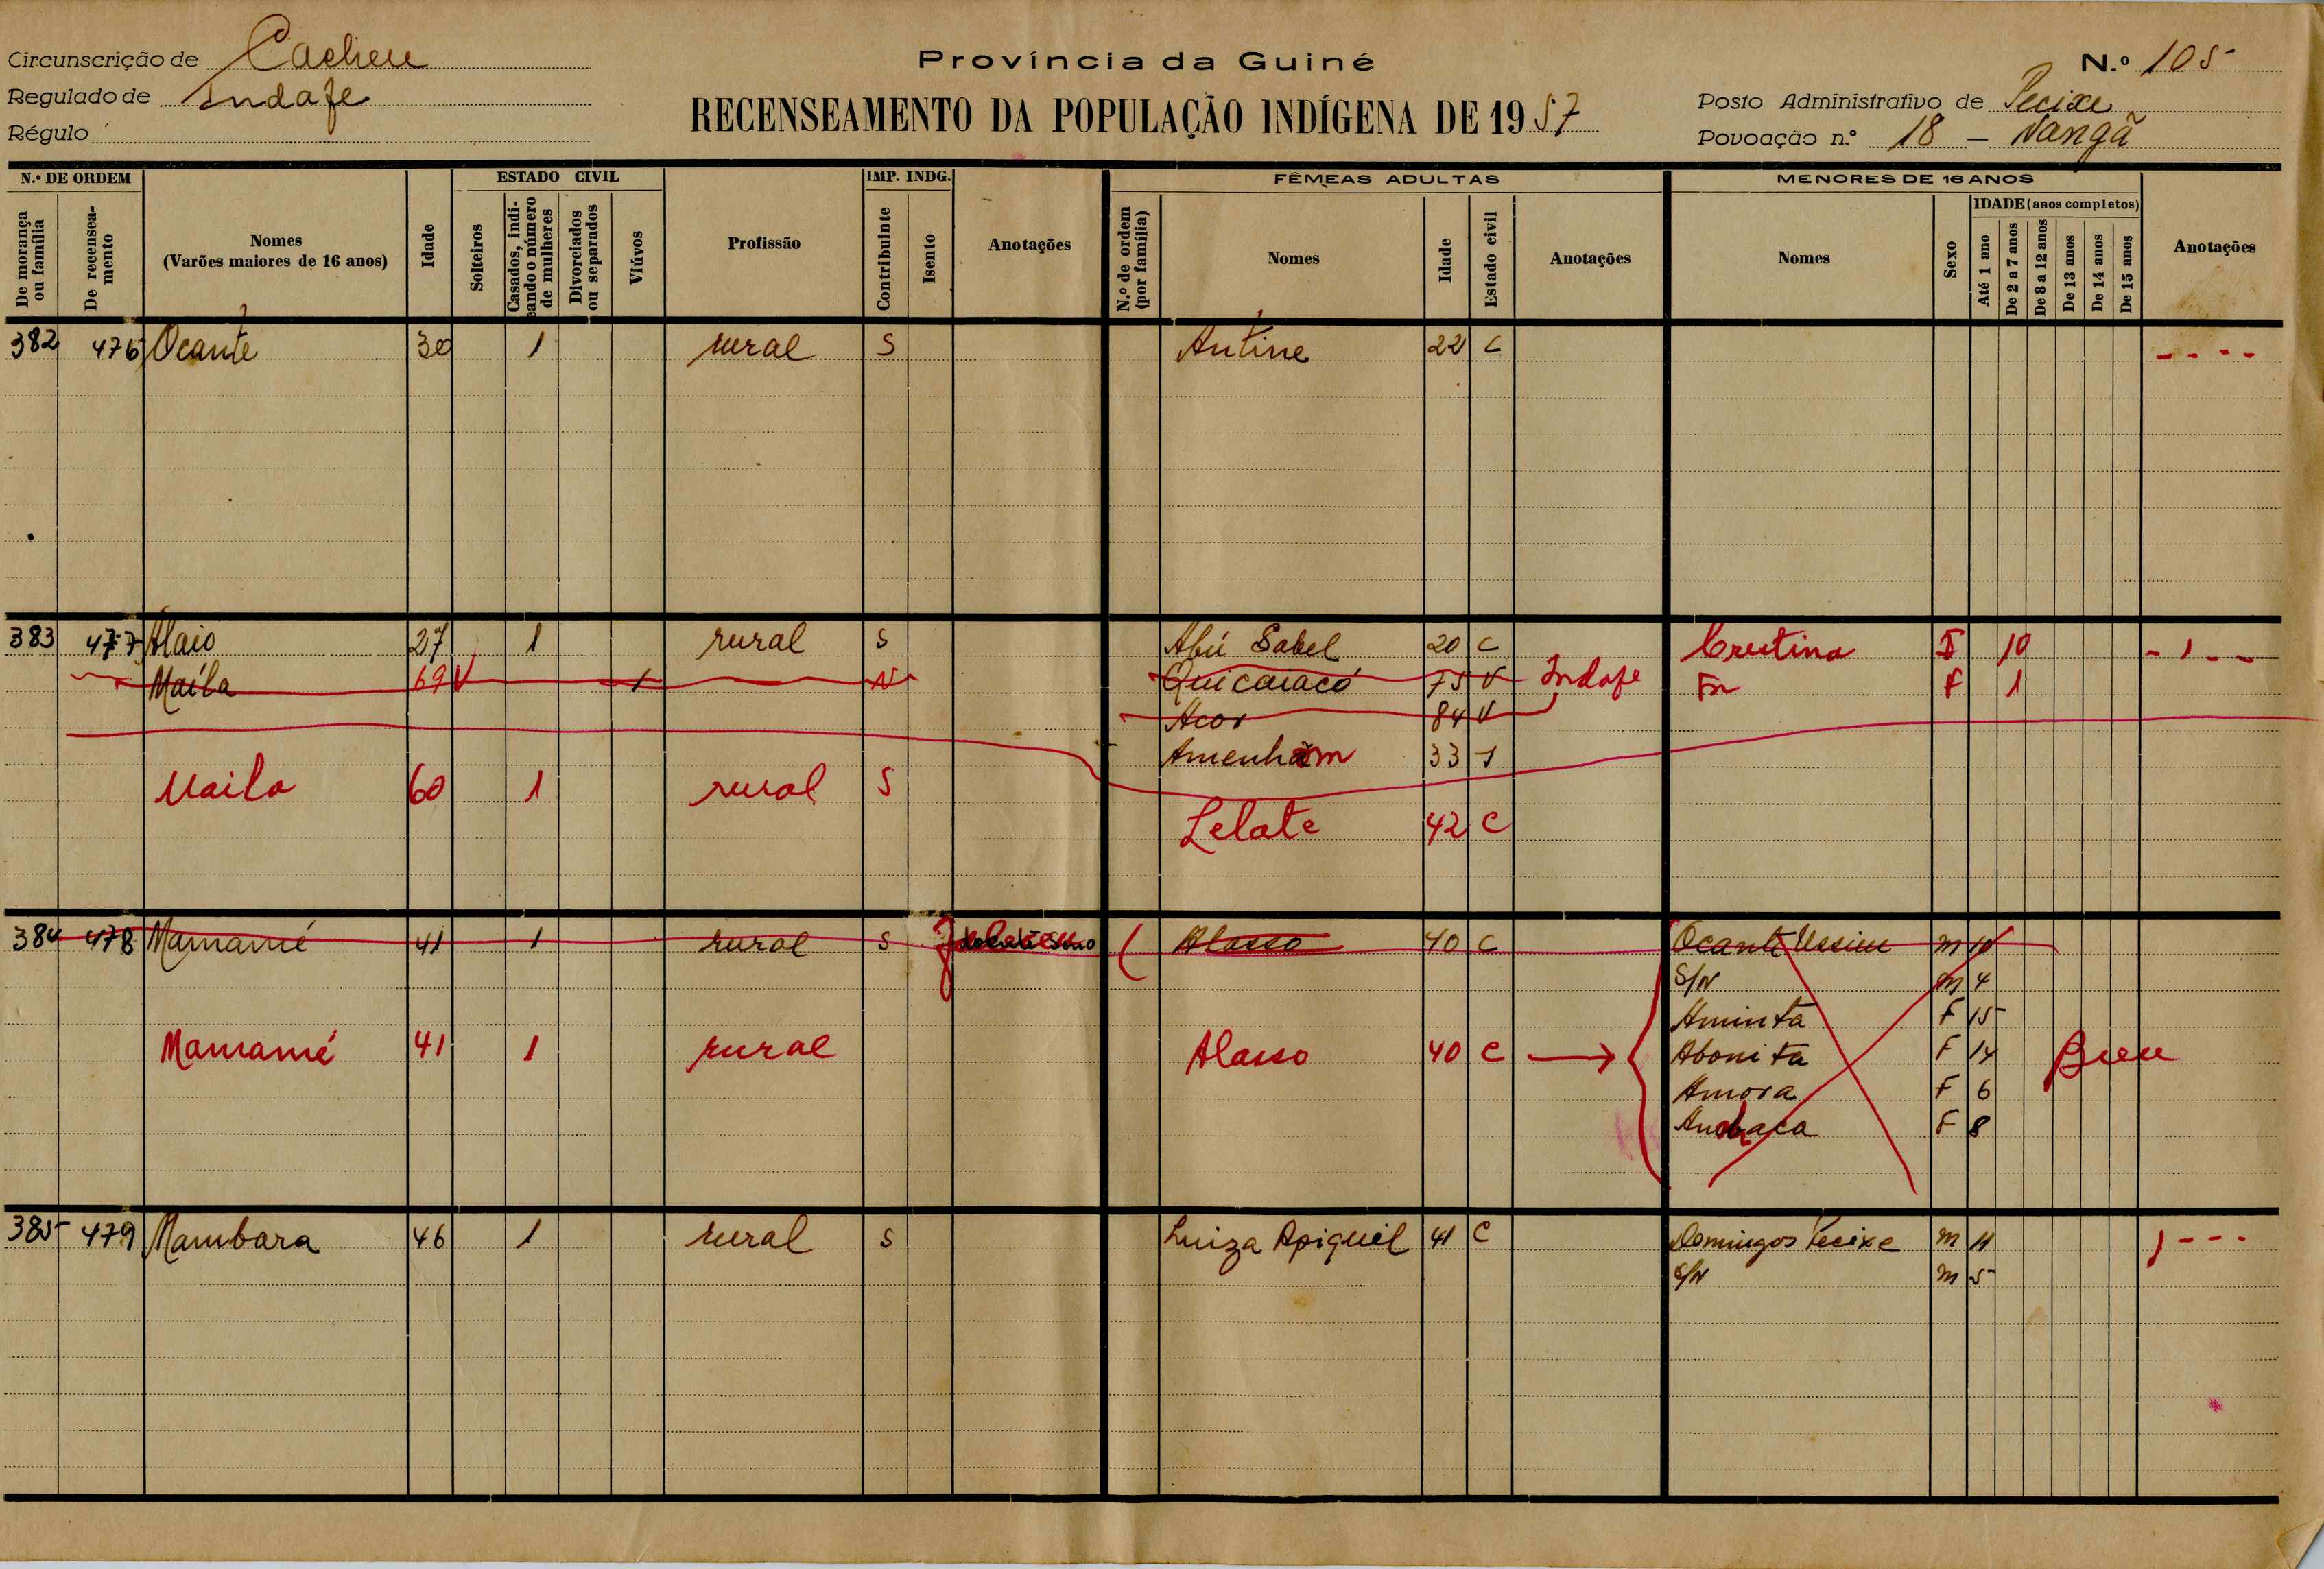 Circunscrição de Cacheu
Regulado de Indafe
Régulo
Província da Guiné
RECENSEAMENTO DA POPULAÇÃO INDÍGENA DE 1957
N.º 105
Posto Administrativo de Pecixe
Povoação n.º 18 — Nangã
N.º DE ORDEM
De morança ou família
De recenseamento
Nomes
(Varões maiores de 16 anos)
Idade
ESTADO CIVIL
Solteiros
Casados, indicando o número de mulheres
Divorciados ou separados
Viúvos
Profissão
IMP. INDG.
Contribuinte
Isento
Anotações
FÊMEAS ADULTAS
N.º de ordem (por família)
Nomes
Idade
Estado civil
Anotações
MENORES DE 16 ANOS
Nomes
Sexo
IDADE (anos completos)
Até 1 ano
De 2 a 7 anos
De 8 a 12 anos
De 13 anos
De 14 anos
De 15 anos
Anotações
382 476 Ocante 30 1 rural S Antine 22 C - - - -
383 477 Alaio 27 1 rural S Abú Sabel 20 C Crestina F 10 - 1 - -
Maíla 69 V 1 N Quicaiacó 75 V Indafe Fn F 1
Acor 84 V
Amenham 33 S
Maila 60 1 rural S
Lelate 42 C
384 478 Mamamé 41 1 rural S Alasso 40 C Ocante Ussieu m 10
S/N m 4
Aminta F 15
Mamamé 41 1 rural Alasso 40 C → Abonita F 14
Amora F 6
F 8
385 479 Mambara 46 1 rural S Luiza Apiquil 41 C Domingos Pecixe m 11 1 - - -
S/N m 5